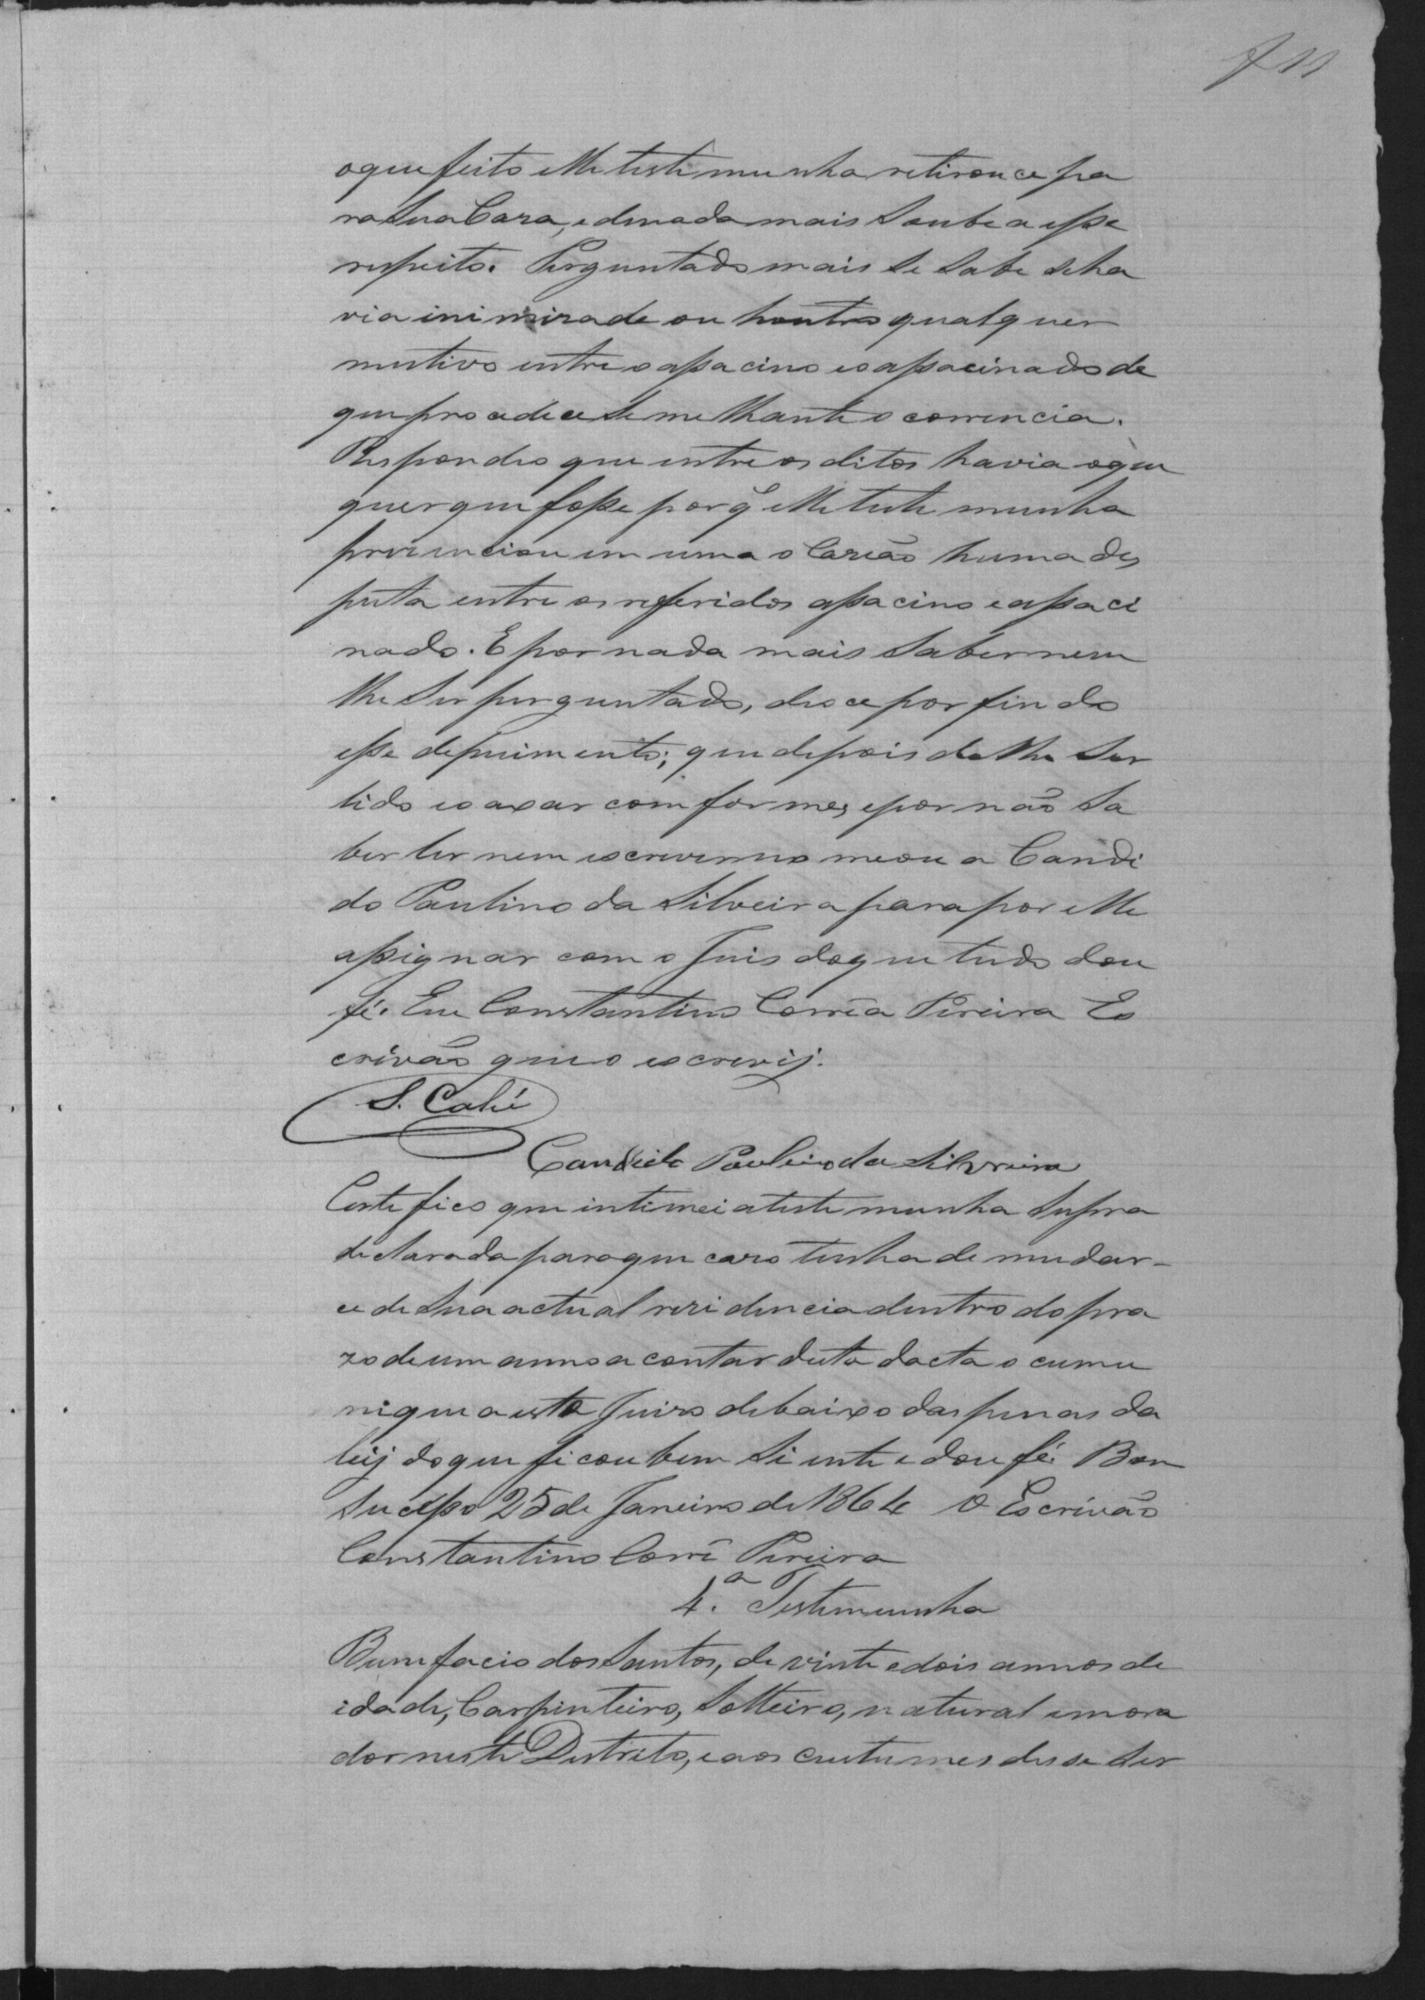 f 11
o que feito elle testimunha retirouce pa
ra sua Caza, e de nada mais soube a esse
respeito. Perguntado mais se sabe se ha
via inimizade ou houtro qualquer
mutivo entre o assacino e o assacinado de
que procedece semelhante ocorrencia.
Respondeo que entre os ditos havia o que
quer que fosse por q̃ elle testemunha
prezenciou em uma ocazião huma des
puta entre os referidos assacino e assaci
nado. E por nada mais saber nem
lhe ser perguntado, disce por findo
esse depuimento; que depois de lhe ser
lido e o axar comforme, e por não sa
ber ler nem escrever nomeou a Candi
do Paulino da Silveira para por elle
assignar com o Juis do que tudo dou
fé. Eu Constantino Corrêa Pereira Es
crivão que o escrevij.
S. Calré
Candido Paulino da Silveira
Certefico que intimei a testemunha supra
declarada para que cazo tenha de mudar-
ce de sua actual rezidencia dentro do pra
zo de um anno a contar desta dacta o cumu
nique a este Juizo debaixo das penas da
leij do que ficou bem siente e dou fé. Bom
Sucesso 25 de Janeiro de 1864 O Escrivão
Constantino Corrê Pereira
4.ª Testemunha
Bunefacio dos Santos, de vinte e dois annos de
idade, Carpinteiro, Solteiro, natural e mora
dor neste Destrito, e aos custumes disse ser